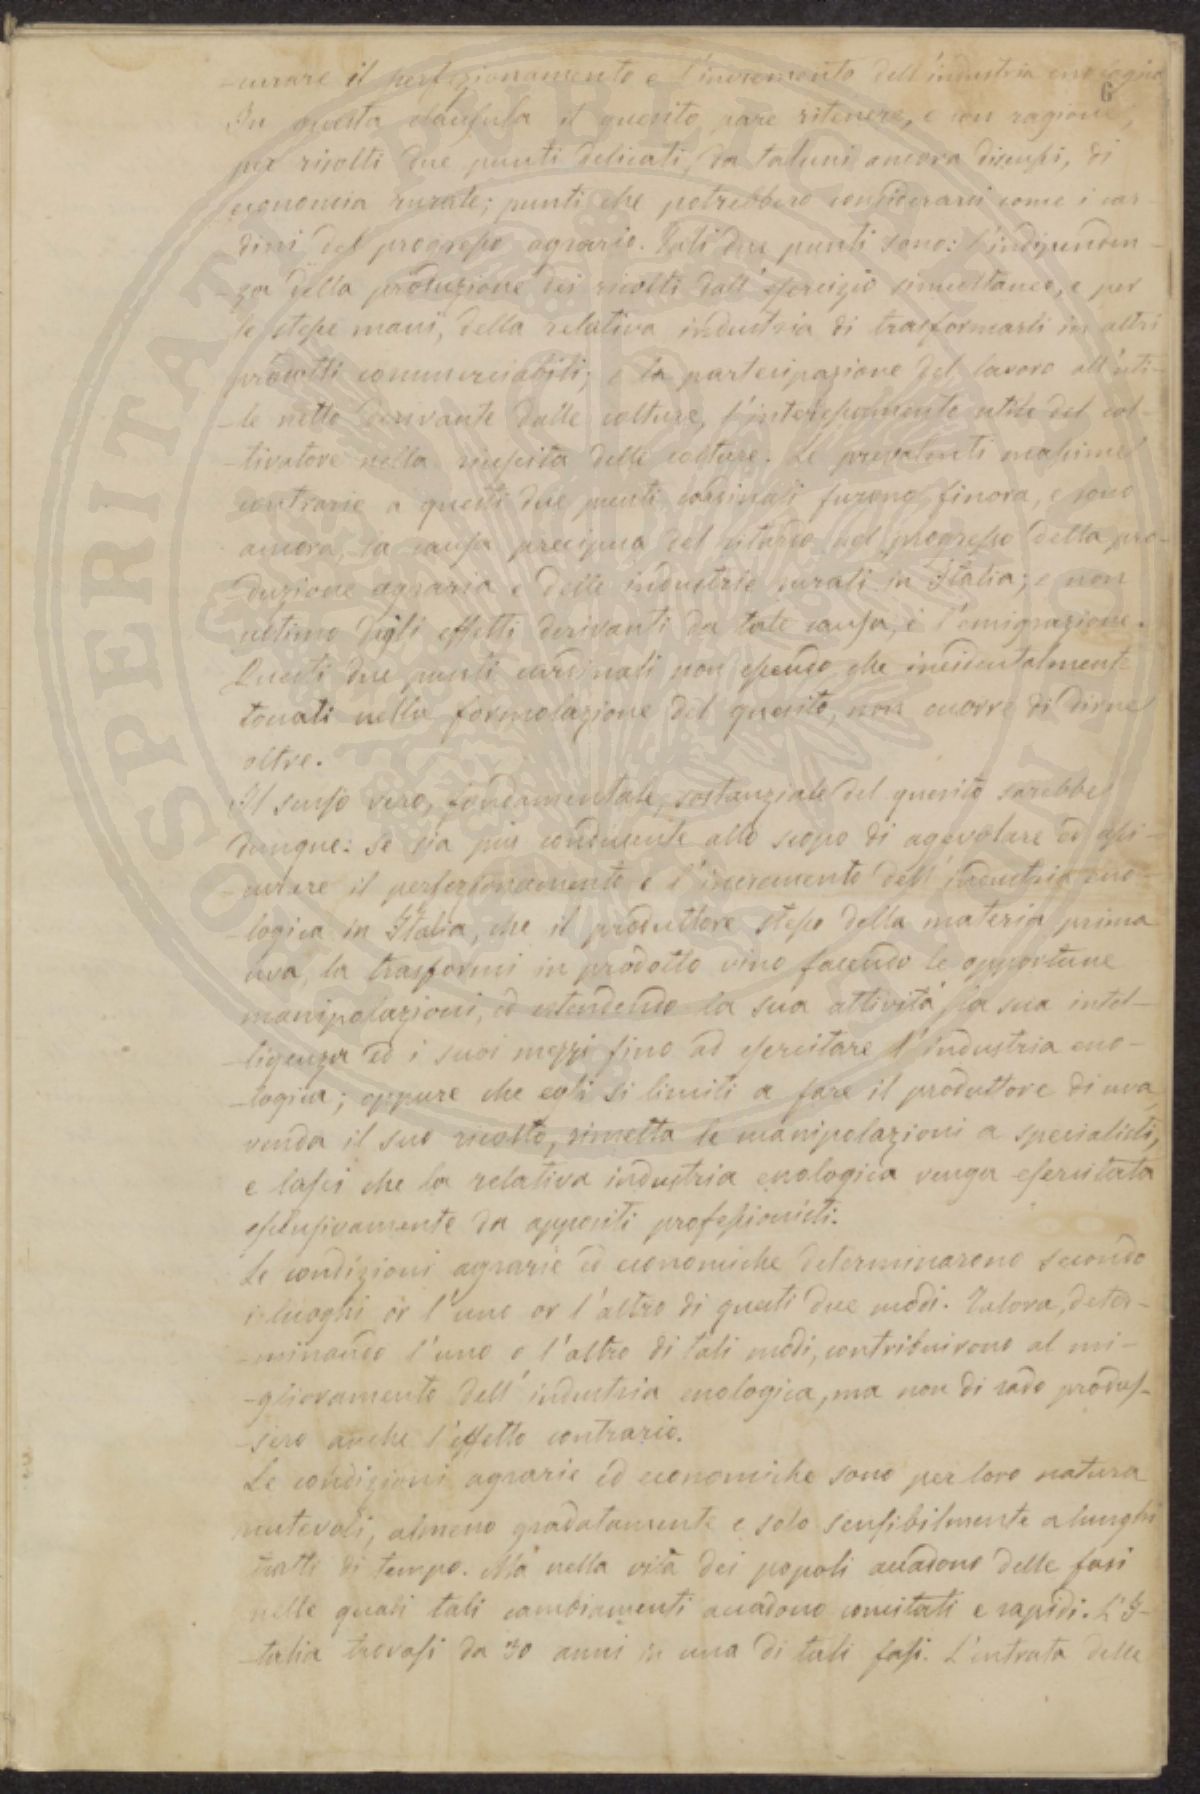 -curare il perfezionamento e l'incremento dell'industria enologica
6
In questa clausula il quesito pare ritenere, e con ragione,
per risolti due punti delicati, da taluni ancora discussi, di
economia rurale; punti che potrebbero considerarsi come i car-
dini del progresso agrario. Tali due punti sono: l'indipenden-
-za della produzione dei ricolti dall'esercizio simultaneo, e per
le stesse mani, della relativa industria di trasformarli in altri
prodotti commerciabili; e la partecipazione del lavoro all'uti-
-le netto derivante dalle colture, l'interessamento utile del col-
-tivatore nella riuscita delle colture. Le prevalenti massime
contrarie a questi due punti cardinali furono finora, e sono
ancora, la causa precipua del ritardo nel progresso della pro-
-duzione agraria e delle industrie rurali in Italia; e non
ultimo degli effetti derivanti da tale causa, è l'emigrazione.
Questi due punti cardinali non essendo che incidentalmente
toccati nella formolazione del quesito, non occorre di dirne
oltre.
Il senso vero, fondamentale, sostanziale del quesito sarebbe
dunque: se sia più conducente allo scopo di agevolare ed assi-
-curare il perfezionamento e l'incremento dell'industria eno-
-logica in Italia, che il produttore stesso della materia prima
uva, la trasformi in prodotto vino facendo le opportune
manipolazioni, ed estendendo la sua attività, la sua intel-
-ligenza ed i suoi mezzi fino ad esercitare l'industria eno-
-logica; oppure che egli si limiti a fare il produttore di uva,
venda il suo ricolto, rimetta le manipolazioni a specialisti,
e lasci che la relativa industria enologica venga esercitata
esclusivamente da appositi professionisti.
Le condizioni agrarie ed economiche determinarono secondo
i luoghi or l'uno or l'altro di questi due modi. Talora, deter-
-minando l'uno o l'altro di tali modi, contribuirono al mi-
-glioramento dell'industria enologica, ma non di rado produs-
-sero anche l'effetto contrario.
Le condizioni agrarie ed economiche sono per loro natura
mutevoli, almeno gradatamente e solo sensibilmente a lunghi
tratti di tempo. Ma nella vita dei popoli accadono delle fasi
nelle quali tali cambiamenti accadono concitati e rapidi. L'I-
-talia trovasi da 30 anni in una di tali fasi. L'entrata delle
SOSPERITATI PUBLICAE